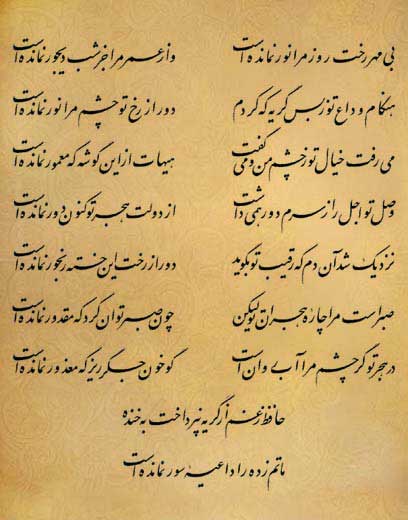 بی مهر رخت روز مرا نور نمانده است وز عمر مرا جز شب دیجور نمانده است
هنگام وداع تو ز بس گریه که کردم دور از رخ تو چشم مرا نور نمانده است
می رفت خیال تو ز چشم من و می گفت هیهات از این گوشه که معمور نمانده است
وصل تو اجل را ز سرم دور همی داشت از دولت هجر تو کنون دور نمانده است
نزدیک شد آن دم که رقیب تو بگوید دور از رخت این خسته رنجور نمانده است
صبر است مرا چاره هجران تو لیکن چون صبر توان کرد که مقدور نمانده است
در هجر تو گر چشم مرا آب روان است گو خون جگر ریز که معذور نمانده است
حافظ ز غم از گریه نپرداخت به خنده
ماتم زده را داعیه سور نمانده است